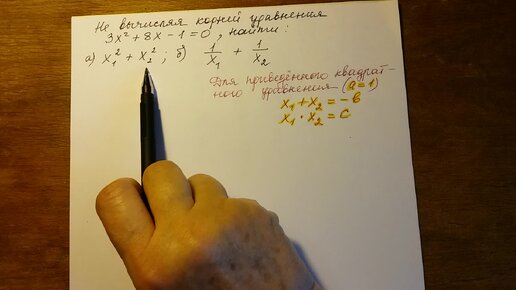 Не вычисляя корней уравнения
3x² + 8x - 1 = 0, найти:
а) x₁² + x₂² ; б) 1/x₁ + 1/x₂
Для приведённого квадрат-
ного уравнения (a = 1)
x₁ + x₂ = -b
x₁ · x₂ = c